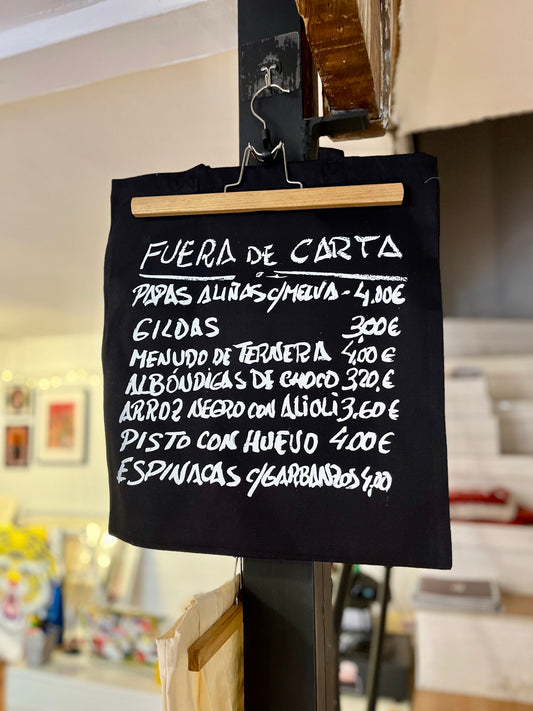 FUERA DE CARTA
PAPAS ALIÑAS C/MELVA - 4.00€
GILDAS 3,00€
MENUDO DE TERNERA 4,00€
ALBÓNDIGAS DE CHOCO 3.20€
ARROZ NEGRO CON ALIOLI 3.60€
PISTO CON HUEVO 4.00€
ESPINACAS C/GARBANZOS 4,00